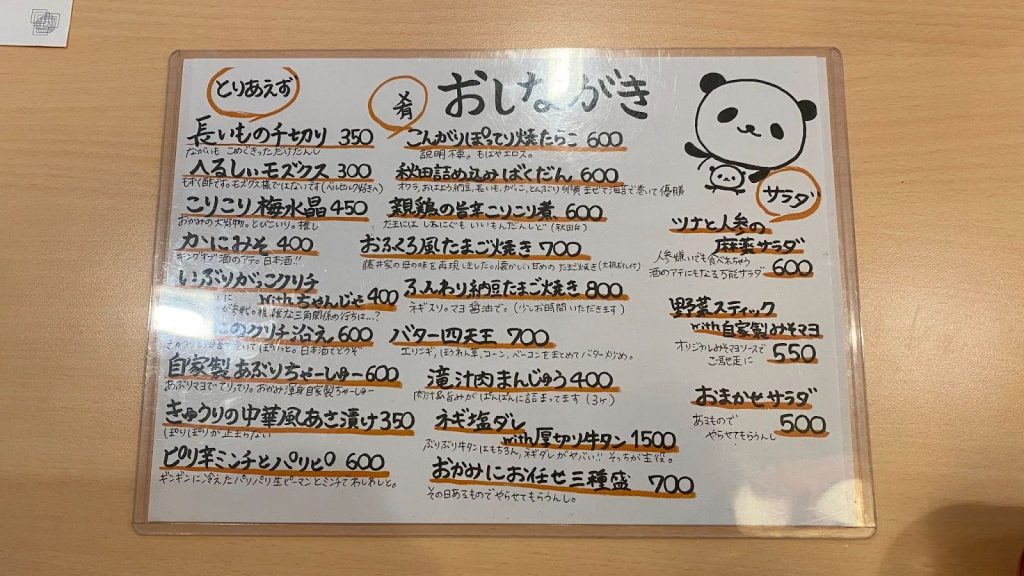 おしながき
とりあえず
長いもの千切り 350
ながいも こめぎっただけだんし
入るしぃモズクス 300
もずく酢です。モズクス様ではないです
こりこり梅水晶 450
おかみの大好物。とびこいり。推し
かにみそ 400
キングオブ酒のアテ。日本酒!!
いぶりがっこクリチ
withちゃんじゃ 400
な三角関係の行方は…?
クリチ沿え 600
自家製あぶりちゃーしゅー 600
あぶりマヨでてりってり。おかみ渾身自家製ちゃーしゅー
きゅうりの中華風あさ漬け 350
ぽりぽりが止まらない
ピリ辛ミンチとパリピ 600
ギンギンに冷えたパリパリ生ピーマンとミンチでわしわしと。
肴
こんがりぽってり焼たらこ 600
説明不要。もはやエロス。
秋田詰め込みばくだん 600
オクラ、おはよう納豆、長いも、がっこ、とんぶり
まぜて海苔で巻いて優勝
親鶏の旨辛こりこり煮 600
たまには しねにぐも いいもんだんしど (秋田弁)
おふくろ風たまご焼き 700
藤井家の母の味を再現しました。懐かしい甘めの たまご焼き(大根おろし付)
ふんわり納豆たまご焼き 800
ネギスリ。マヨ醤油で。(少しお時間いただきます)
バター四天王 700
エリンギ、ほうれん草、コーン、ベーコンをまとめてバター炒め。
滝汁肉まんじゅう 400
肉汁&旨みが ぱんぱんに詰まってます (3ヶ)
ネギ塩ダレ
with厚切り牛タン 1500
ぶりぶり牛タンはもちろん、ネギダレがヤバい!! そっちが主役。
おかみにお任せ三種盛 700
その日あるものでやらせてもらうんし。
サラダ
ツナと人参の
麻薬サラダ
人参嫌いでも食べれちゃう
酒のアテにもなる万能サラダ 600
野菜スティック
with自家製みそマヨ
オリジナルみそマヨソースで
ご馳走に 550
おまかせサラダ
あるもので
やらせてもらうんし 500